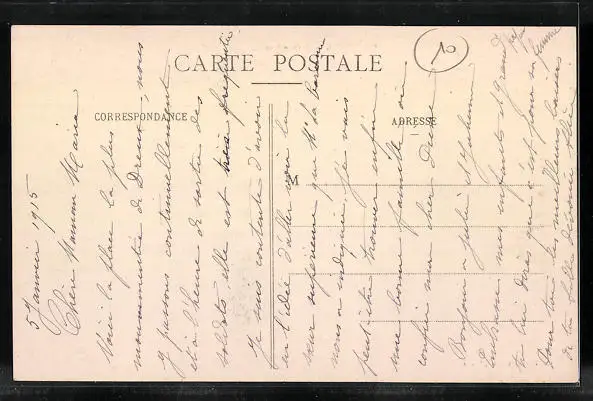 CARTE POSTALE
CORRESPONDANCE
ADRESSE
M
10
5 Janvier 1915
Chère Maman Maria
Voici la place la plus
monumentrée de Dreux, nous
y passons continuellement
et à l'heure de sortie des
soldats elle est très fréquentée
Je suis contente d'avoir
eu l'idée d'aller voir la
sœur supérieure que Mr le
nous a indiquée. Je vais
peut-être trouver enfin
une bonne famille où
confier mon cher
Bonjour à Julia et
Embrasse mes enfants et grand
tu lui diras que c'est pour sa femme
Pour tous les meilleurs baisers
de ta fille